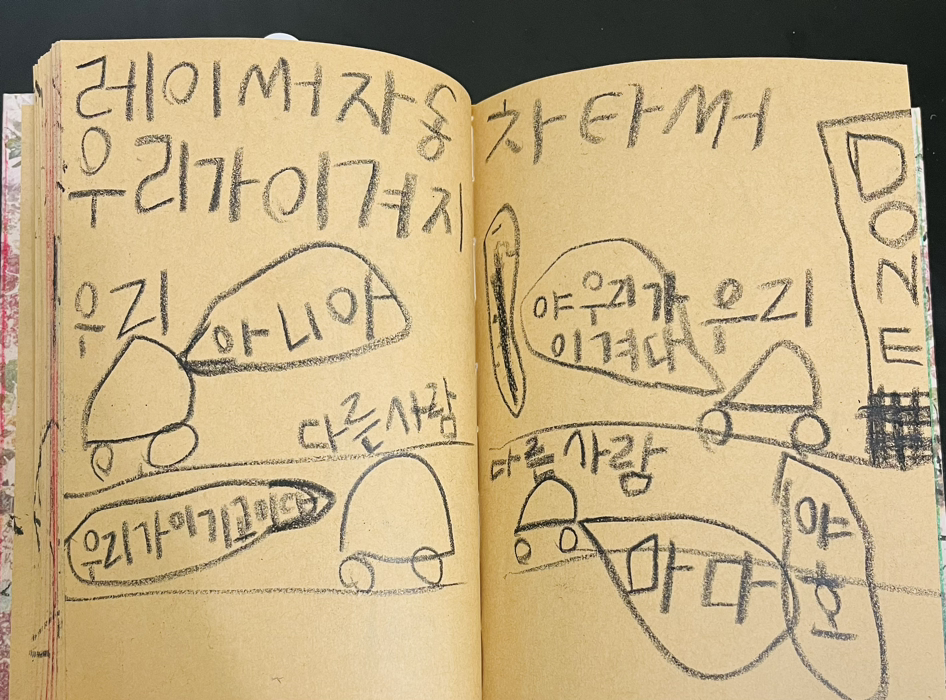 레이써자동차타써
우리가이겨지
우리
아니아
다른사람
우리가이기고이다
야우리가
이겨다
우리
DONE
다른사람
마다
야호